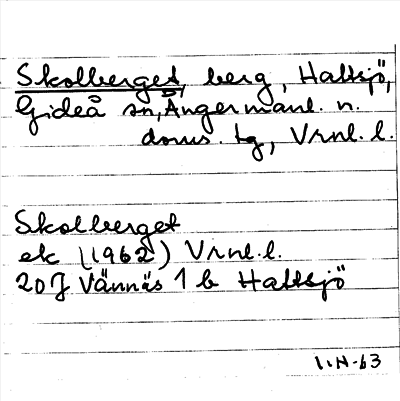 Skolberget, berg, Hattsjö,
Gideå sn, Ångermanl. n.
doms. tg, Vrnl. l.
Skolberget
ek (1962) Vrnl. l.
20J Vännäs 1 b Hattsjö
I.N-63